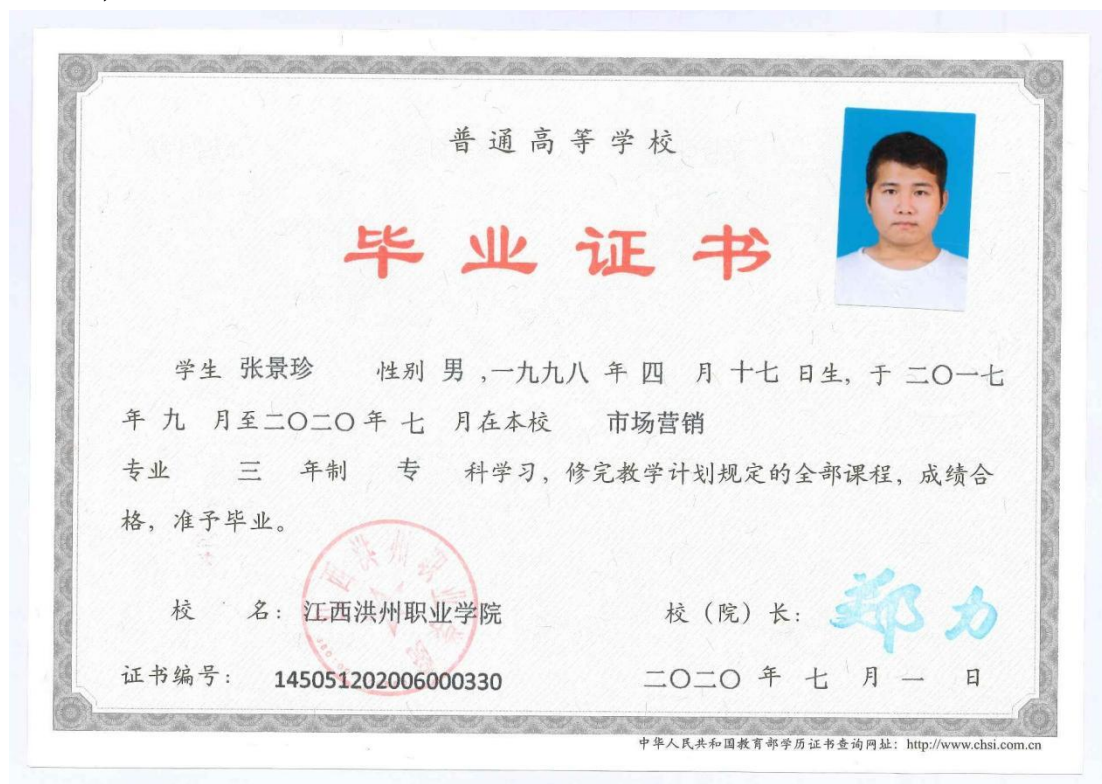 普通高等学校
毕业证书
学生 张景珍 性别 男 ,一九九八 年 四 月 十七 日生, 于 二〇一七
年 九 月至二〇二〇年 七 月在本校 市场营销
专业 三 年制 专 科学习, 修完教学计划规定的全部课程, 成绩合
格, 准予毕业。
江西洪州职业学院
校 名: 江西洪州职业学院 校 (院) 长: 郑力
证书编号: 145051202006000330 二〇二〇 年 七 月 一 日
中华人民共和国教育部学历证书查询网址: http://www.chsi.com.cn